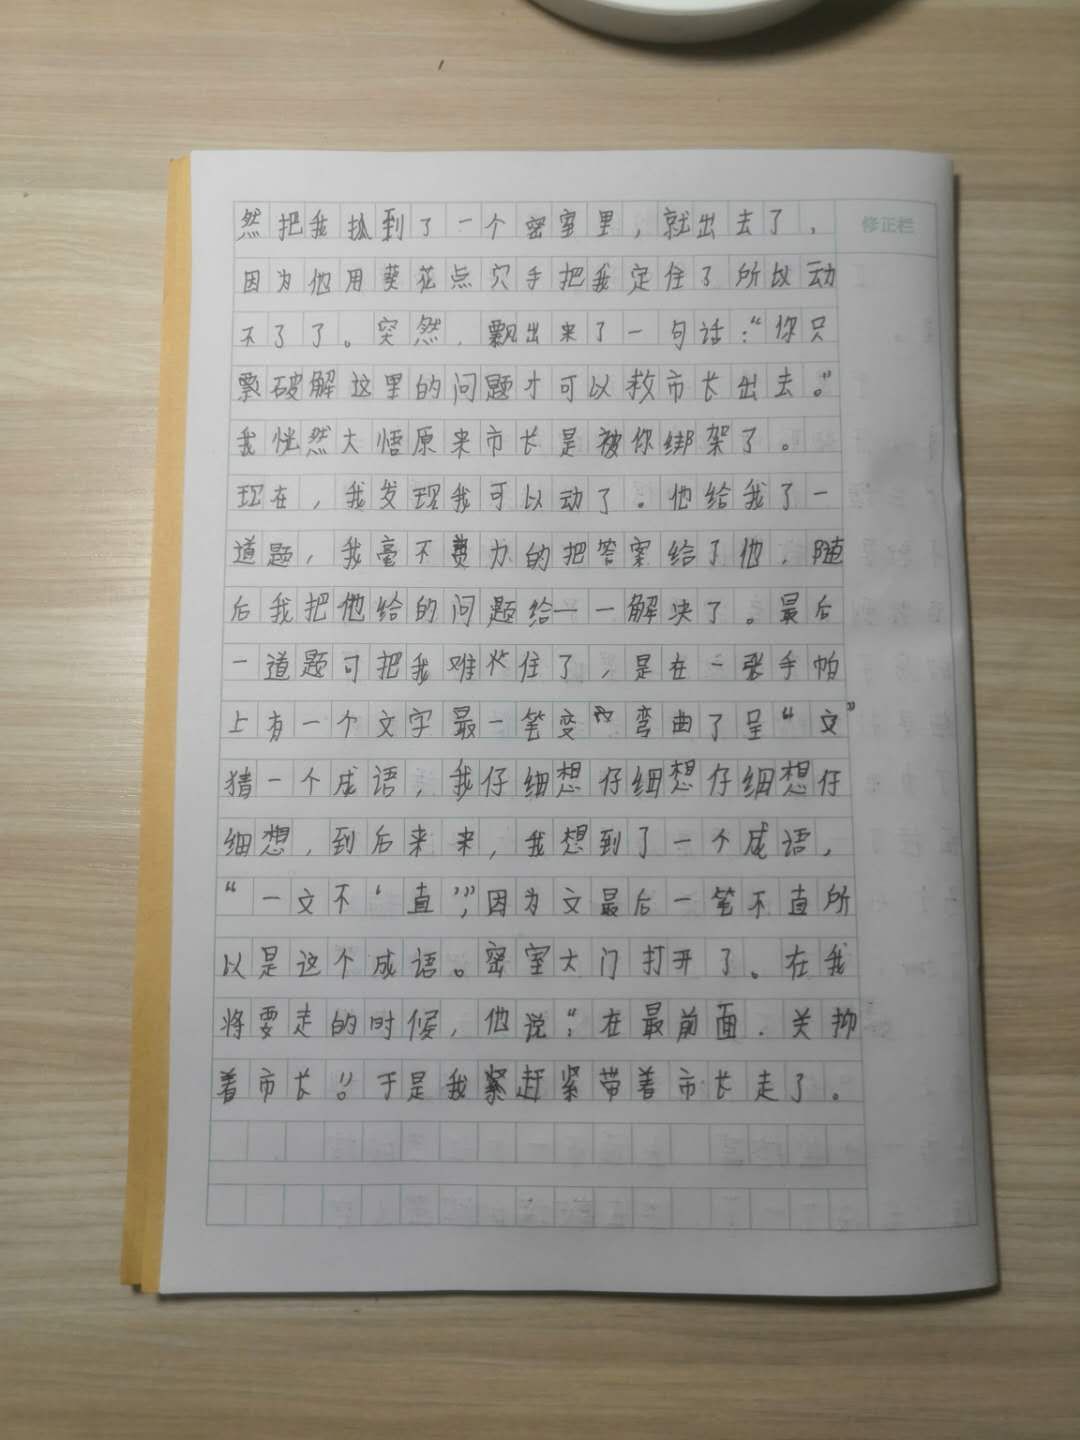 然把我抓到了一个密室里，就出去了，
修正栏
因为他用葵花点穴手把我定住了所以动
不了了。突然，飘出来了一句话：“你只
要破解这里的问题才可以救市长出去。”
我恍然大悟原来市长是被你绑架了。
现在，我发现我可以动了。他给我了一
道题，我毫不费力的把答案给了他，随
后我把他给的问题给一一解决了。最后
一道题可把我难住了，是在一张手帕
上有一个文字最一笔变弯曲了呈“文”
猜一个成语，我仔细想仔细想仔细想仔
细想，到后来来，我想到了一个成语，
“一文不‘直’”，因为文最后一笔不直所
以是这个成语。密室大门打开了。在我
将要走的时候，他说：“在最前面，关押
着市长。”于是我紧赶紧带着市长走了。